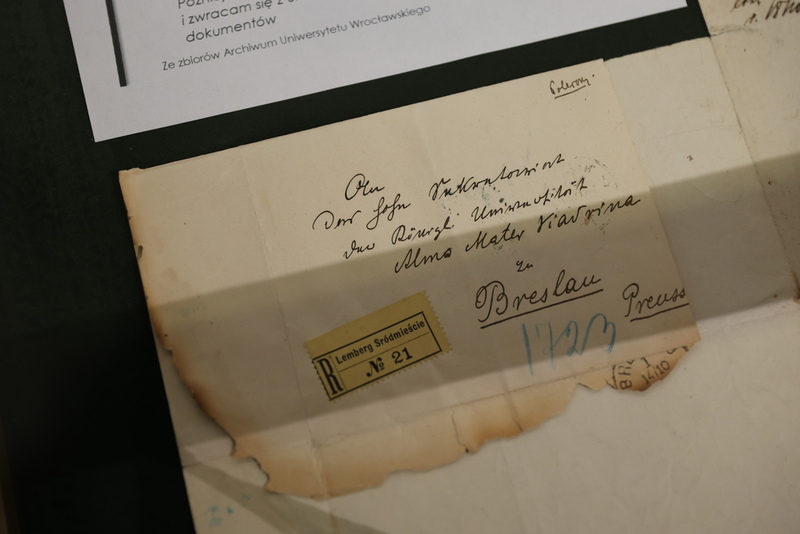 i zwracam się z
dokumentów
Ze zbiorów Archiwum Uniwersytetu Wrocławskiego
An
Das hohe Sekretariat
der Königl. Universität
Alma Mater Viadrina
zu
Breslau
Preuss
R Lemberg Sródmieście
№ 21
1723
BR
14/10